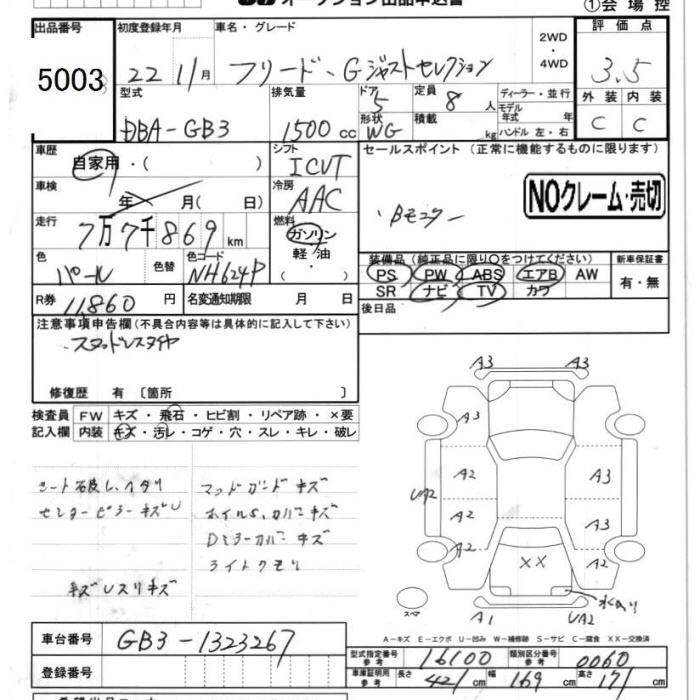 オークション出品申込書
①会場控
出品番号
5003
初度登録年月
22 11月
車名・グレード
フリード、Gジャストセレクション
2WD
・
4WD
評価点
3.5
外装 内装
C C
型式
DBA-GB3
排気量
1500 cc
ドア
5
形状
WG
定員
8 人
積載
kg
ディーラー・並行
モデル
年式 年
ハンドル 左・右
車歴
自家用・( )
シフト
ICVT
車検
年 月( 日)
冷房
AAC
走行
7万7千869 km
燃料
ガソリン
軽油
・
( )
色
パール
色替
色コード
NH624P
R券
11,860 円
名変通知期限 月 日
セールスポイント(正常に機能するものに限ります)
NOクレーム・売切
装備品(純正品に限り○をつけてください)
PS PW ABS エアB AW
SR ナビ TV カワ
新車保証書
有・無
後日品
注意事項申告欄(不具合内容等は具体的に記入して下さい)
スタッドレスタイヤ
修復歴 有〔箇所 〕
検査員
記入欄
FW キズ・飛石・ヒビ割・リペア跡・×要
内装 キズ・汚レ・コゲ・穴・スレ・キレ・破レ
シート破レ、ヘタリ
センターピラーキズU
キズUスリキズ
マッドガードキズ
ホイルS、カバーキズ
Dミラーカバーキズ
ライトクモリ
A3 A3
A3
A2 A3
UA2
A2 A3
A2 A2
XX
スペア
A1 UA2
A-キズ E-エクボ U-凹み W-補修跡 S-サビ C-腐食 XX-交換済
車台番号
GB3-1323267
登録番号
型式指定番号
参考
16100
類別区分番号
参考
0060
車庫証明用
参考
長さ 421 cm
幅 169 cm
高さ 171 cm